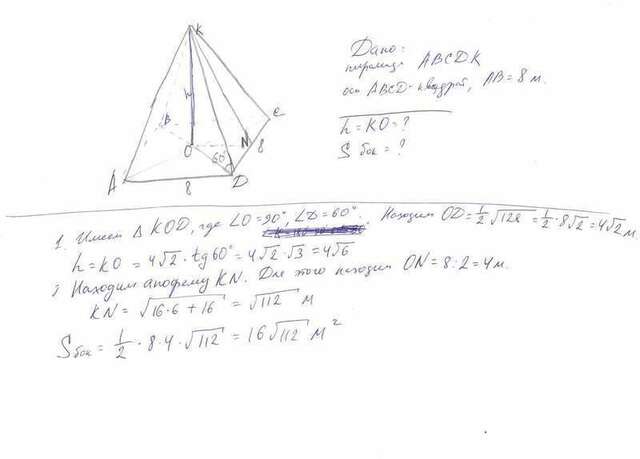 K
h
B
C
O
N
60°
8
A
8
D
Дано:
пирамида ABCDK
осн ABCD-квадрат, AB=8 м.
h=KO=?
S бок =?
1. Имеем Δ KOD, где ∠O=90°, ∠D=60°. Находим OD=1/2√128=1/2·8√2=4√2 м
h=KO=4√2·tg60°=4√2·√3=4√6
Находим апофему KN. Для этого находим ON=8:2=4м.
KN=√16·6+16=√112 м
Sбок=1/2·8·4·√112=16√112 м²